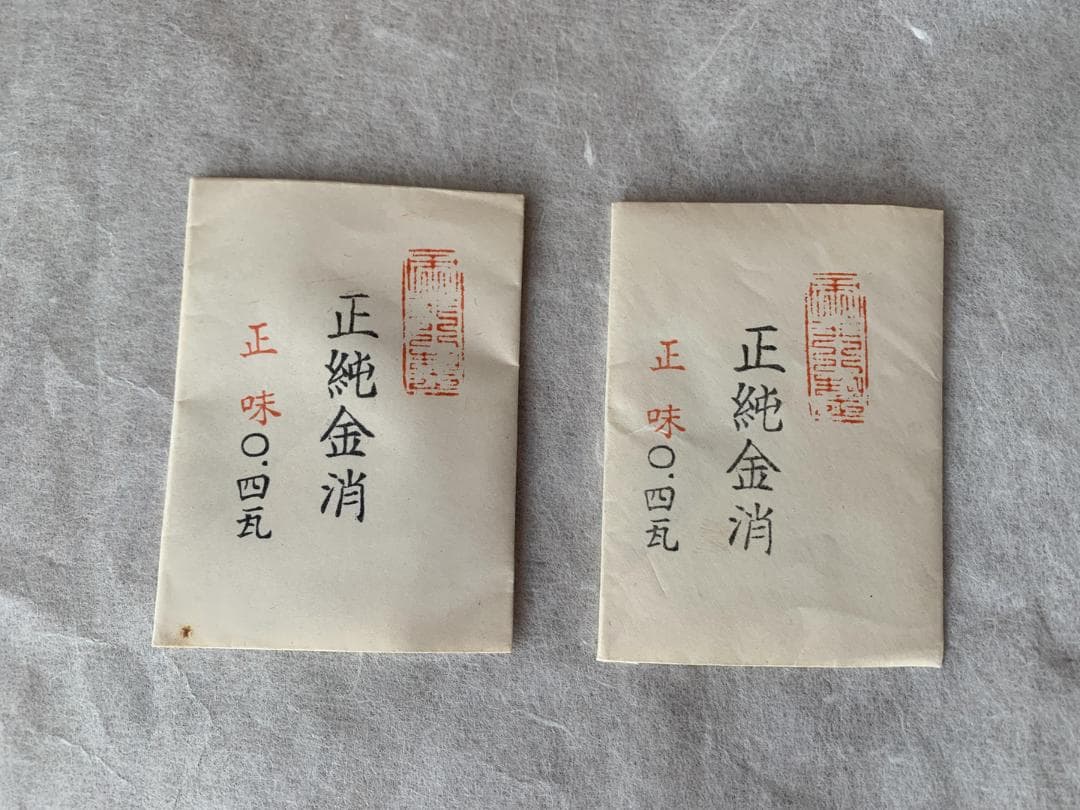 正純金消
正味〇.四瓦
正純金消
正味〇.四瓦